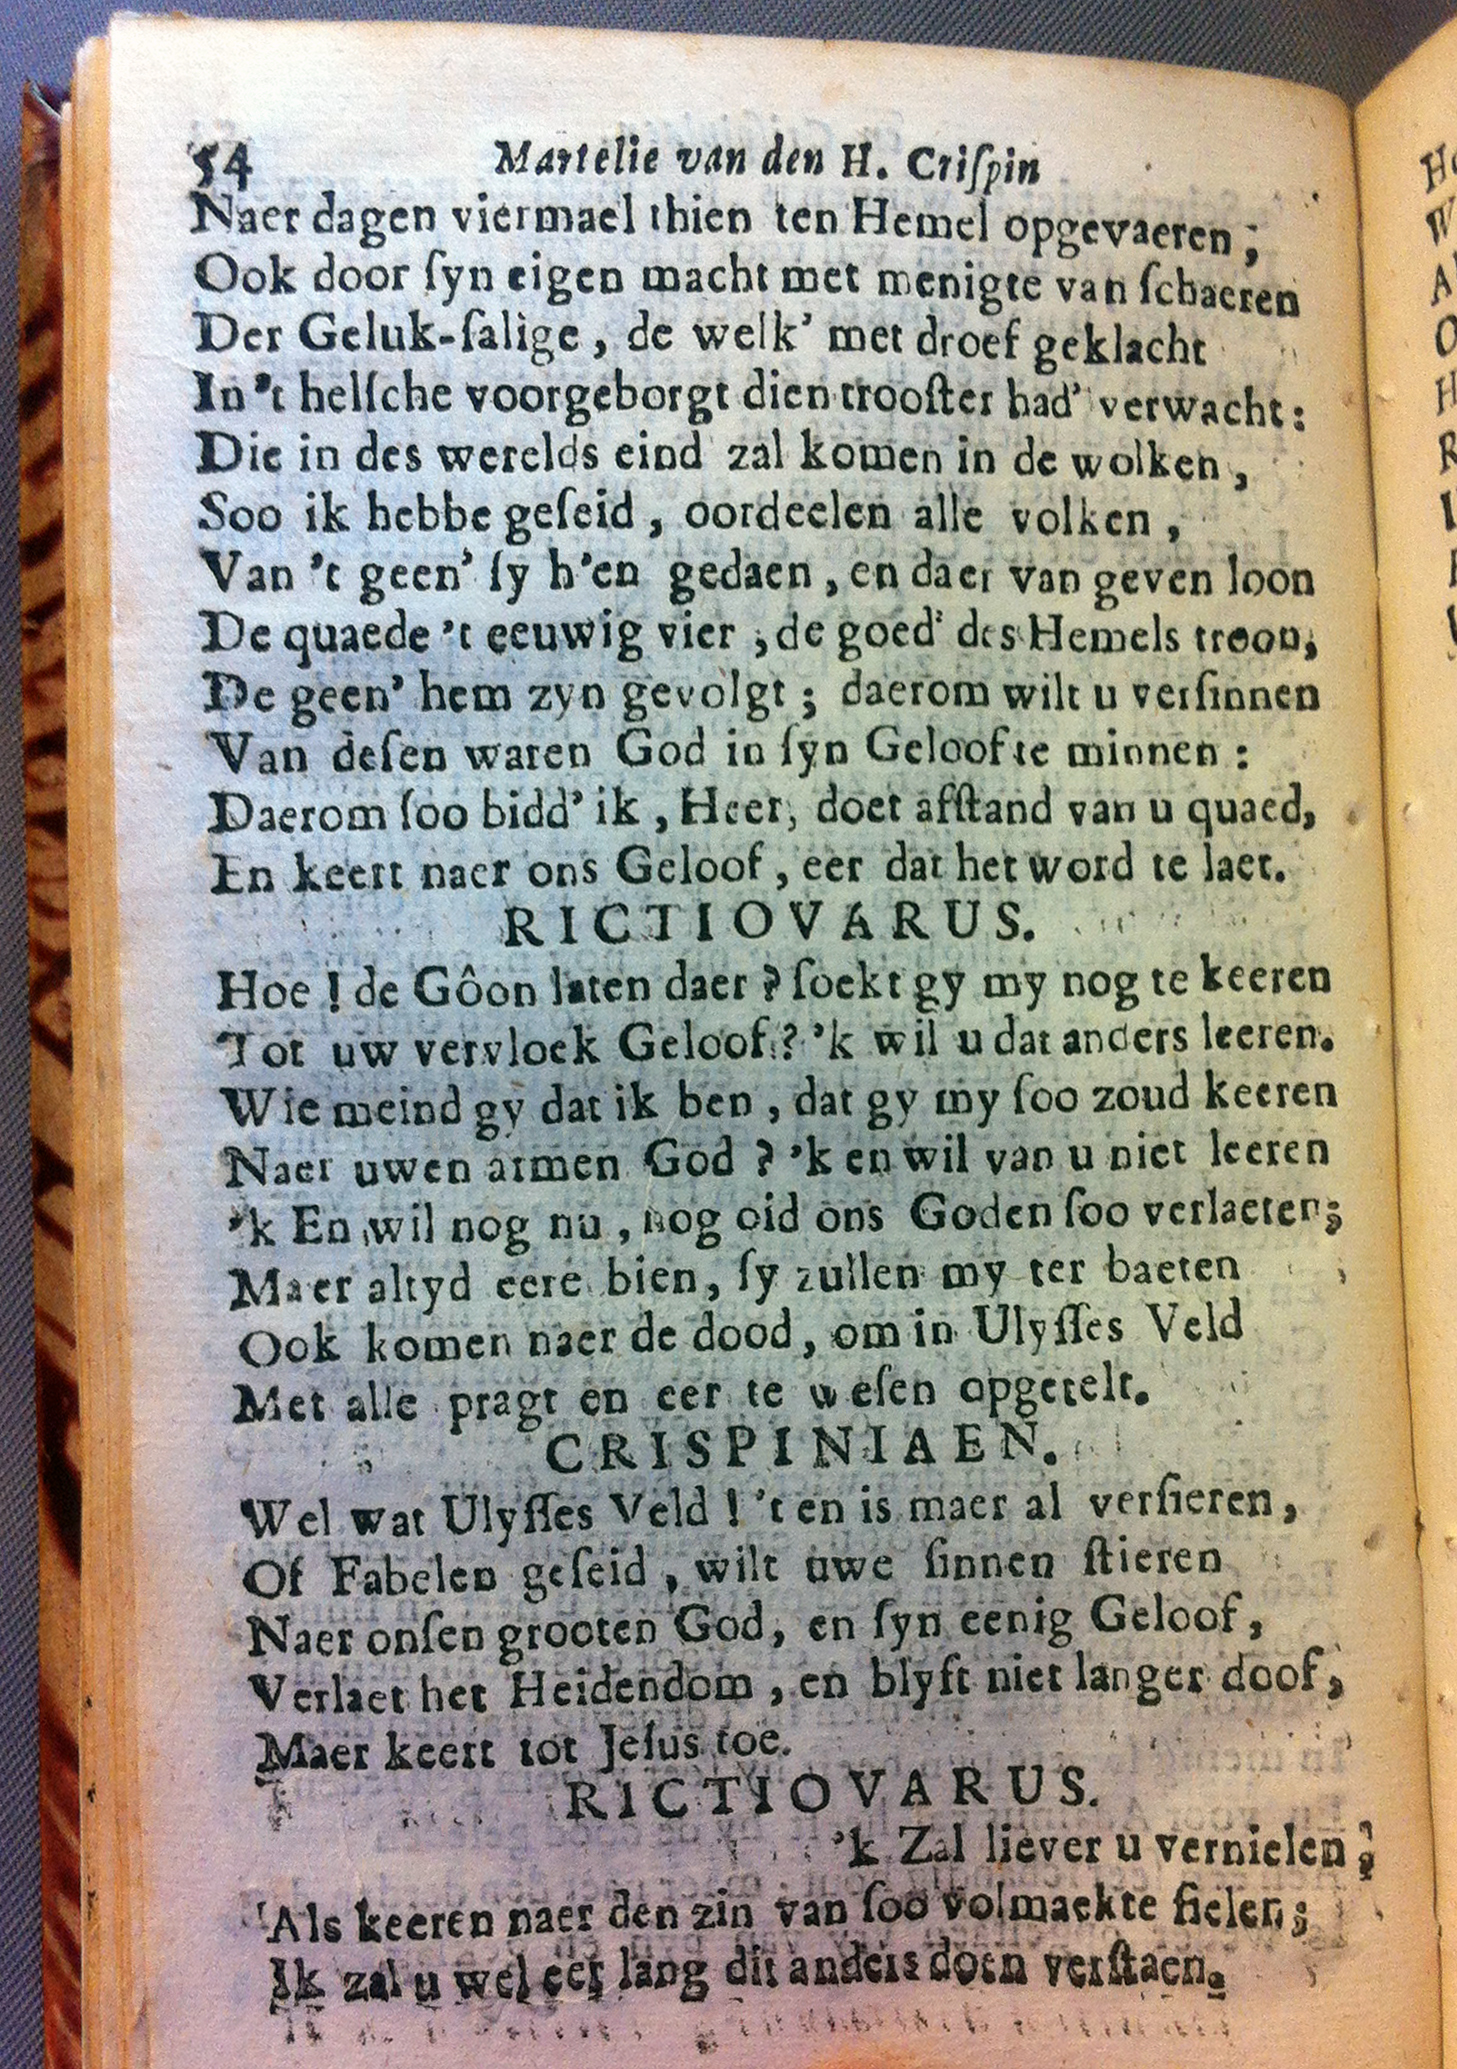 54 Martelie van den H. Criſpin
Naer dagen viermael thien ten Hemel opgevaeren;
Ook door ſyn eigen macht met menigte van ſchaeren
Der Geluk-ſalige, de welk' met droef geklacht
In 't helſche voorgeborgt dien trooſter had' verwacht:
Die in des werelds eind zal komen in de wolken,
Soo ik hebbe geſeid, oordeelen alle volken,
Van 't geen' ſy h'en gedaen, en daer van geven loon
De quaede 't eeuwig vier, de goed' des Hemels troon,
De geen' hem zyn gevolgt; daerom wilt u verſinnen
Van deſen waren God in ſyn Geloof te minnen:
Daerom ſoo bidd' ik, Heer, doet afſtand van u quaed,
En keert naer ons Geloof, eer dat het word te laet.
RICTIOVARUS.
Hoe! de Gôon laten daer? ſoekt gy my nog te keeren
Tot uw vervloek Geloof? 'k wil u dat anders leeren.
Wie meind gy dat ik ben, dat gy my ſoo zoud keeren
Naer uwen armen God? 'k en wil van u niet leeren
'k En wil nog nu, nog oid ons Goden ſoo verlaeten;
Maer altyd eere bien, ſy zullen my ter baeten
Ook komen naer de dood, om in Ulyſſes Veld
Met alle pragt en eer te weſen opgetelt.
CRISPINIAEN.
Wel wat Ulyſſes Veld! 't en is maer al verſieren,
Of Fabelen geſeid, wilt uwe ſinnen ſtieren
Naer onſen grooten God, en ſyn eenig Geloof,
Verlaet het Heidendom, en blyft niet langer doof,
Maer keert tot Jeſus toe.
RICTIOVARUS.
'k Zal liever u vernielen,
Als keeren naer den zin van ſoo volmaekte fielen;
Ik zal u wel eer lang dit anders doen verſtaen.